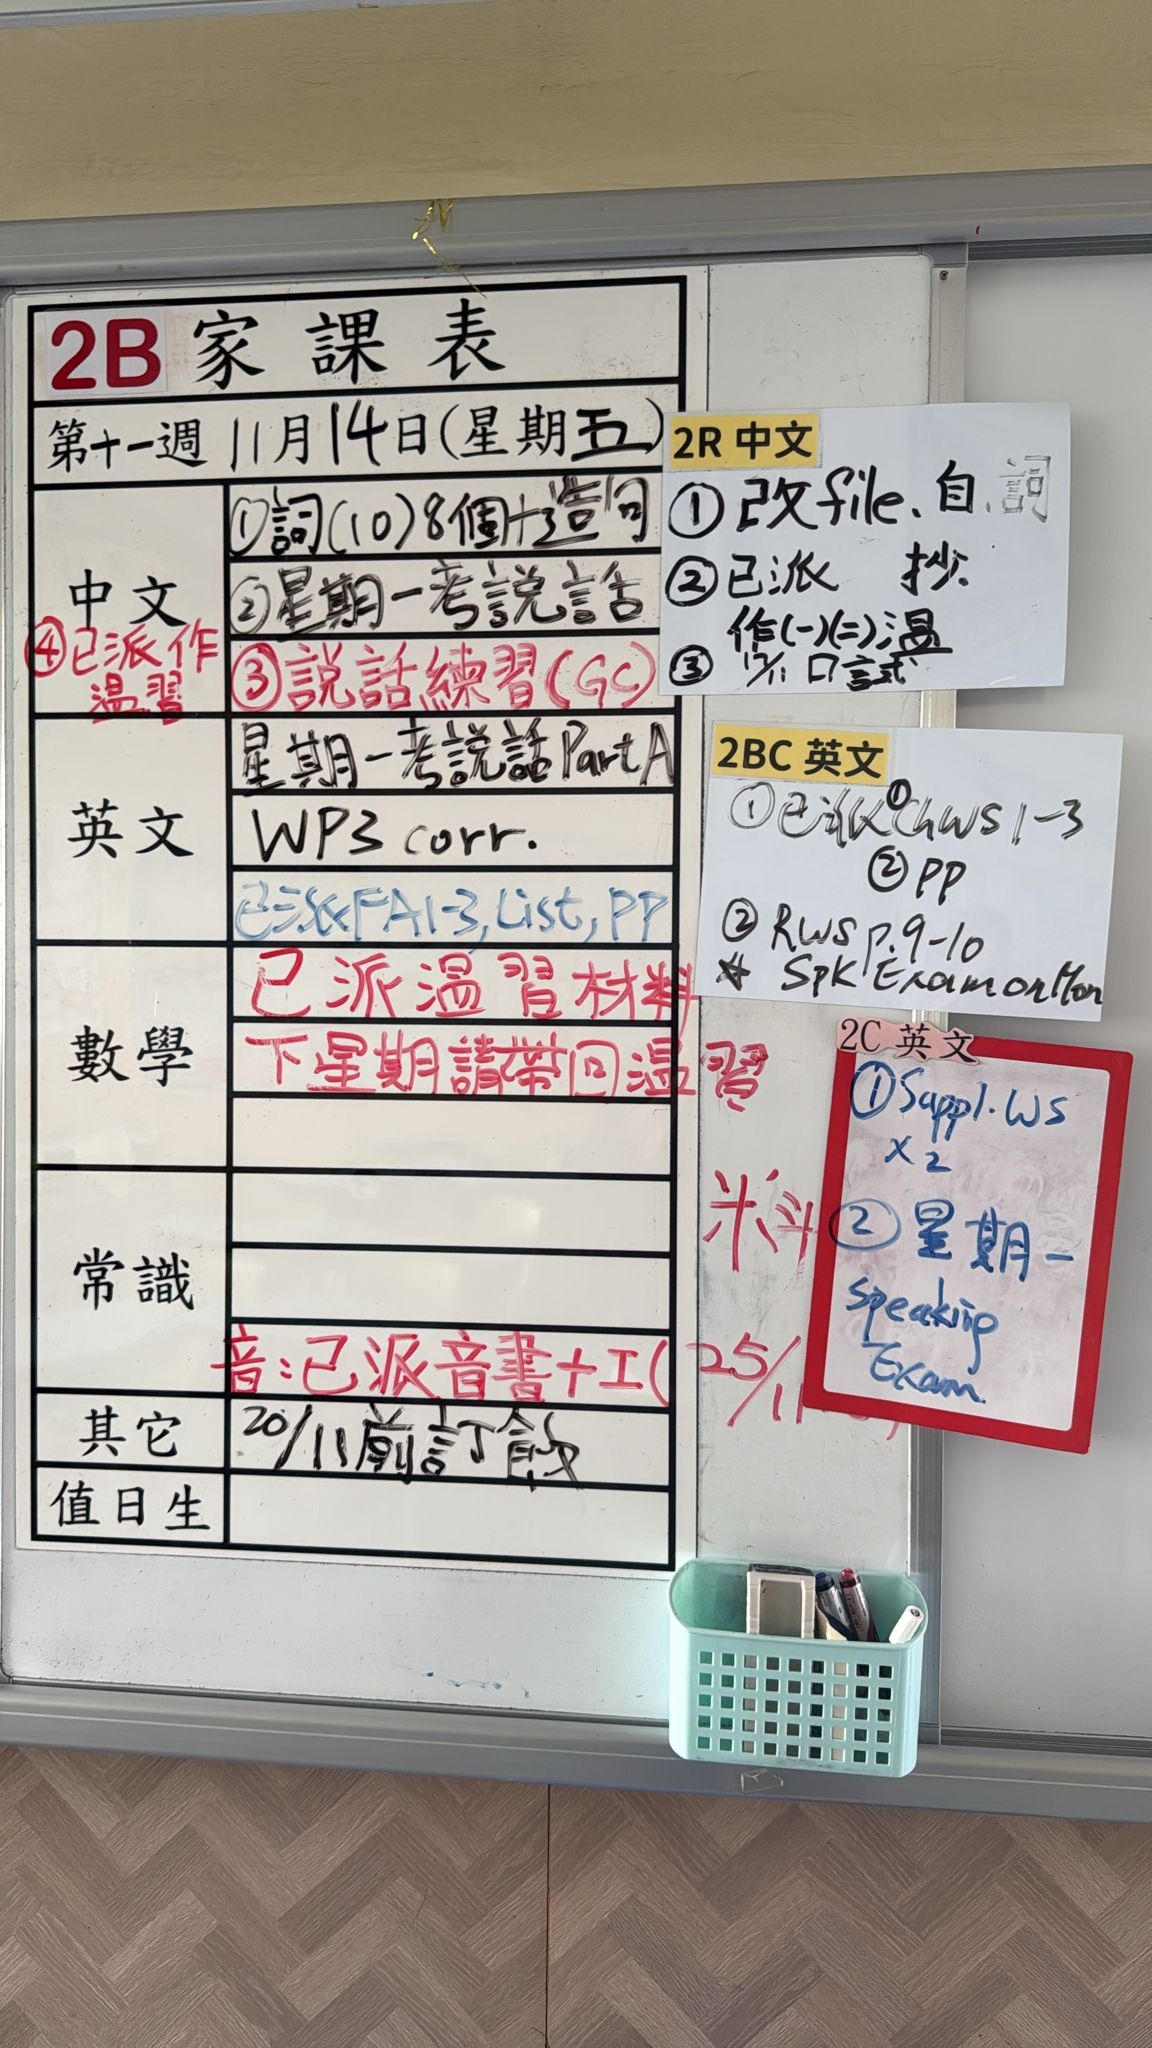 2B 家課表
第十一週 11月14日(星期五)
中文
①詞(10)8個+造句
②星期一考説話
③説話練習(GC)
④已派作
温習
英文
星期一考説話Part A
WP3 corr.
已派FA1-3, List, PP
數學
已派温習材料
下星期請帶回温習
常識
料
音:已派音書+工(25/11
其它
20/11前訂飯
值日生
2R 中文
①改file、自詞
②已派 抄
作(一)(二)温
③ 17/11 口試
2BC 英文
①已派①GWS 1-3
②PP
② RWS p.9-10
* Spk Exam on Mon
2C 英文
①Suppl. WS
x2
②星期一
Speaking
Exam.